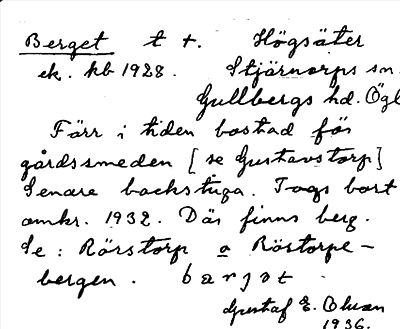 Berget t +. Högsäter
ek. kb 1928. Stjärnorps sn.
Gullbergs hd. Ögl
Förr i tiden bostad för
gårdssmeden [se Gustavstorp]
Senare backstuga. Togs bort
omkr. 1932. Där finns berg.
Se: Rörstorp o Röstorpe-
bergen. bærjət
Gustaf E. Olsson
1936.